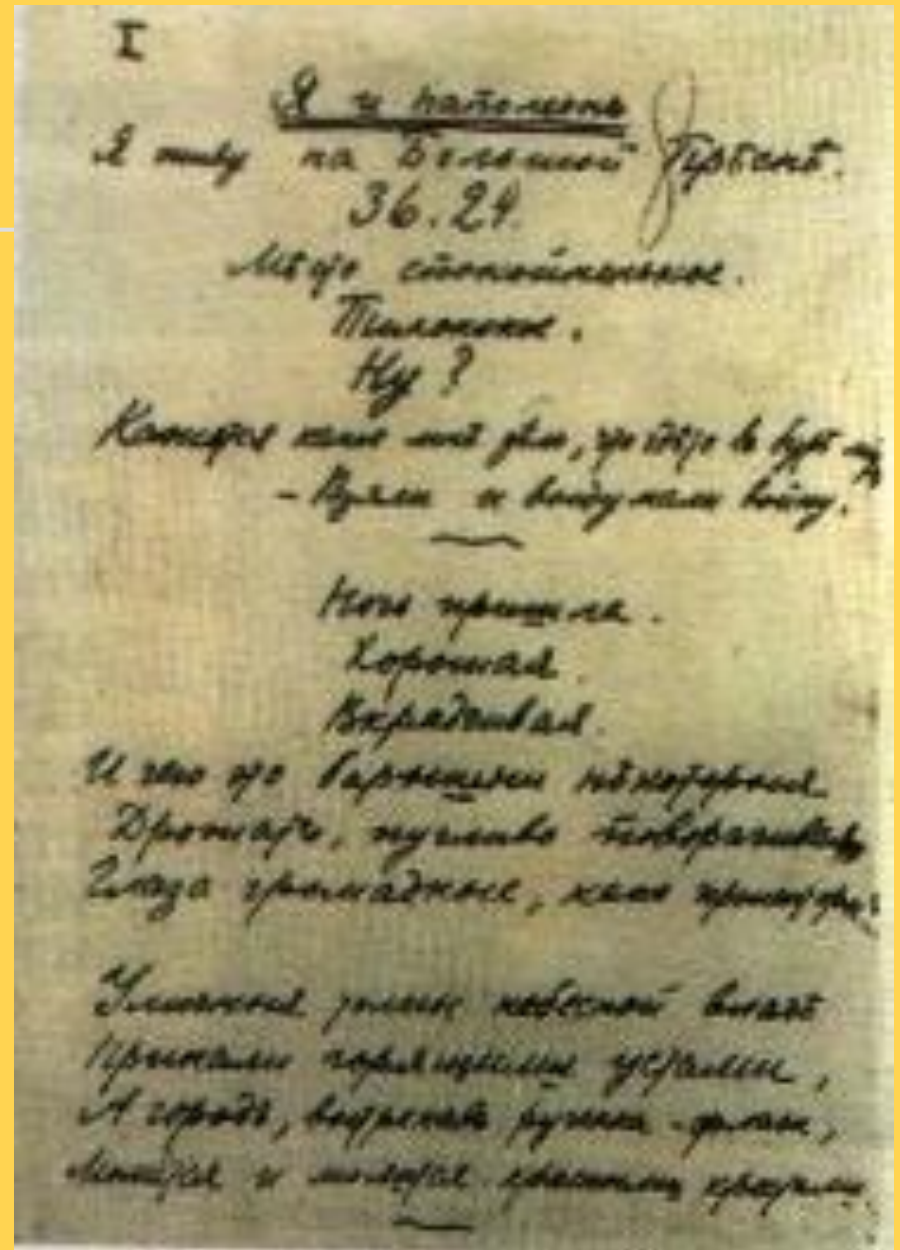 I
Я и Наполеонъ
Я живу на Большой Прѣснѣ.
36.24.
Мѣсто спокойненькое.
Тихонькое.
Ну?
Кажется какое мнѣ дѣло, что гдѣ то въ
- Взяли и выдумали войну?
Ночь пришла.
Хорошая.
Вкрадчивая.
И чего это барышни нѣкоторыя
Дрожатъ, пугливо поворачивая
Глаза громадные, какъ прожекторы?
Уличныя толпы небесной влагѣ
Припали горящими устами,
А городъ, вытрепавъ ручонки-флаги,
Молится и молится красными крестами.